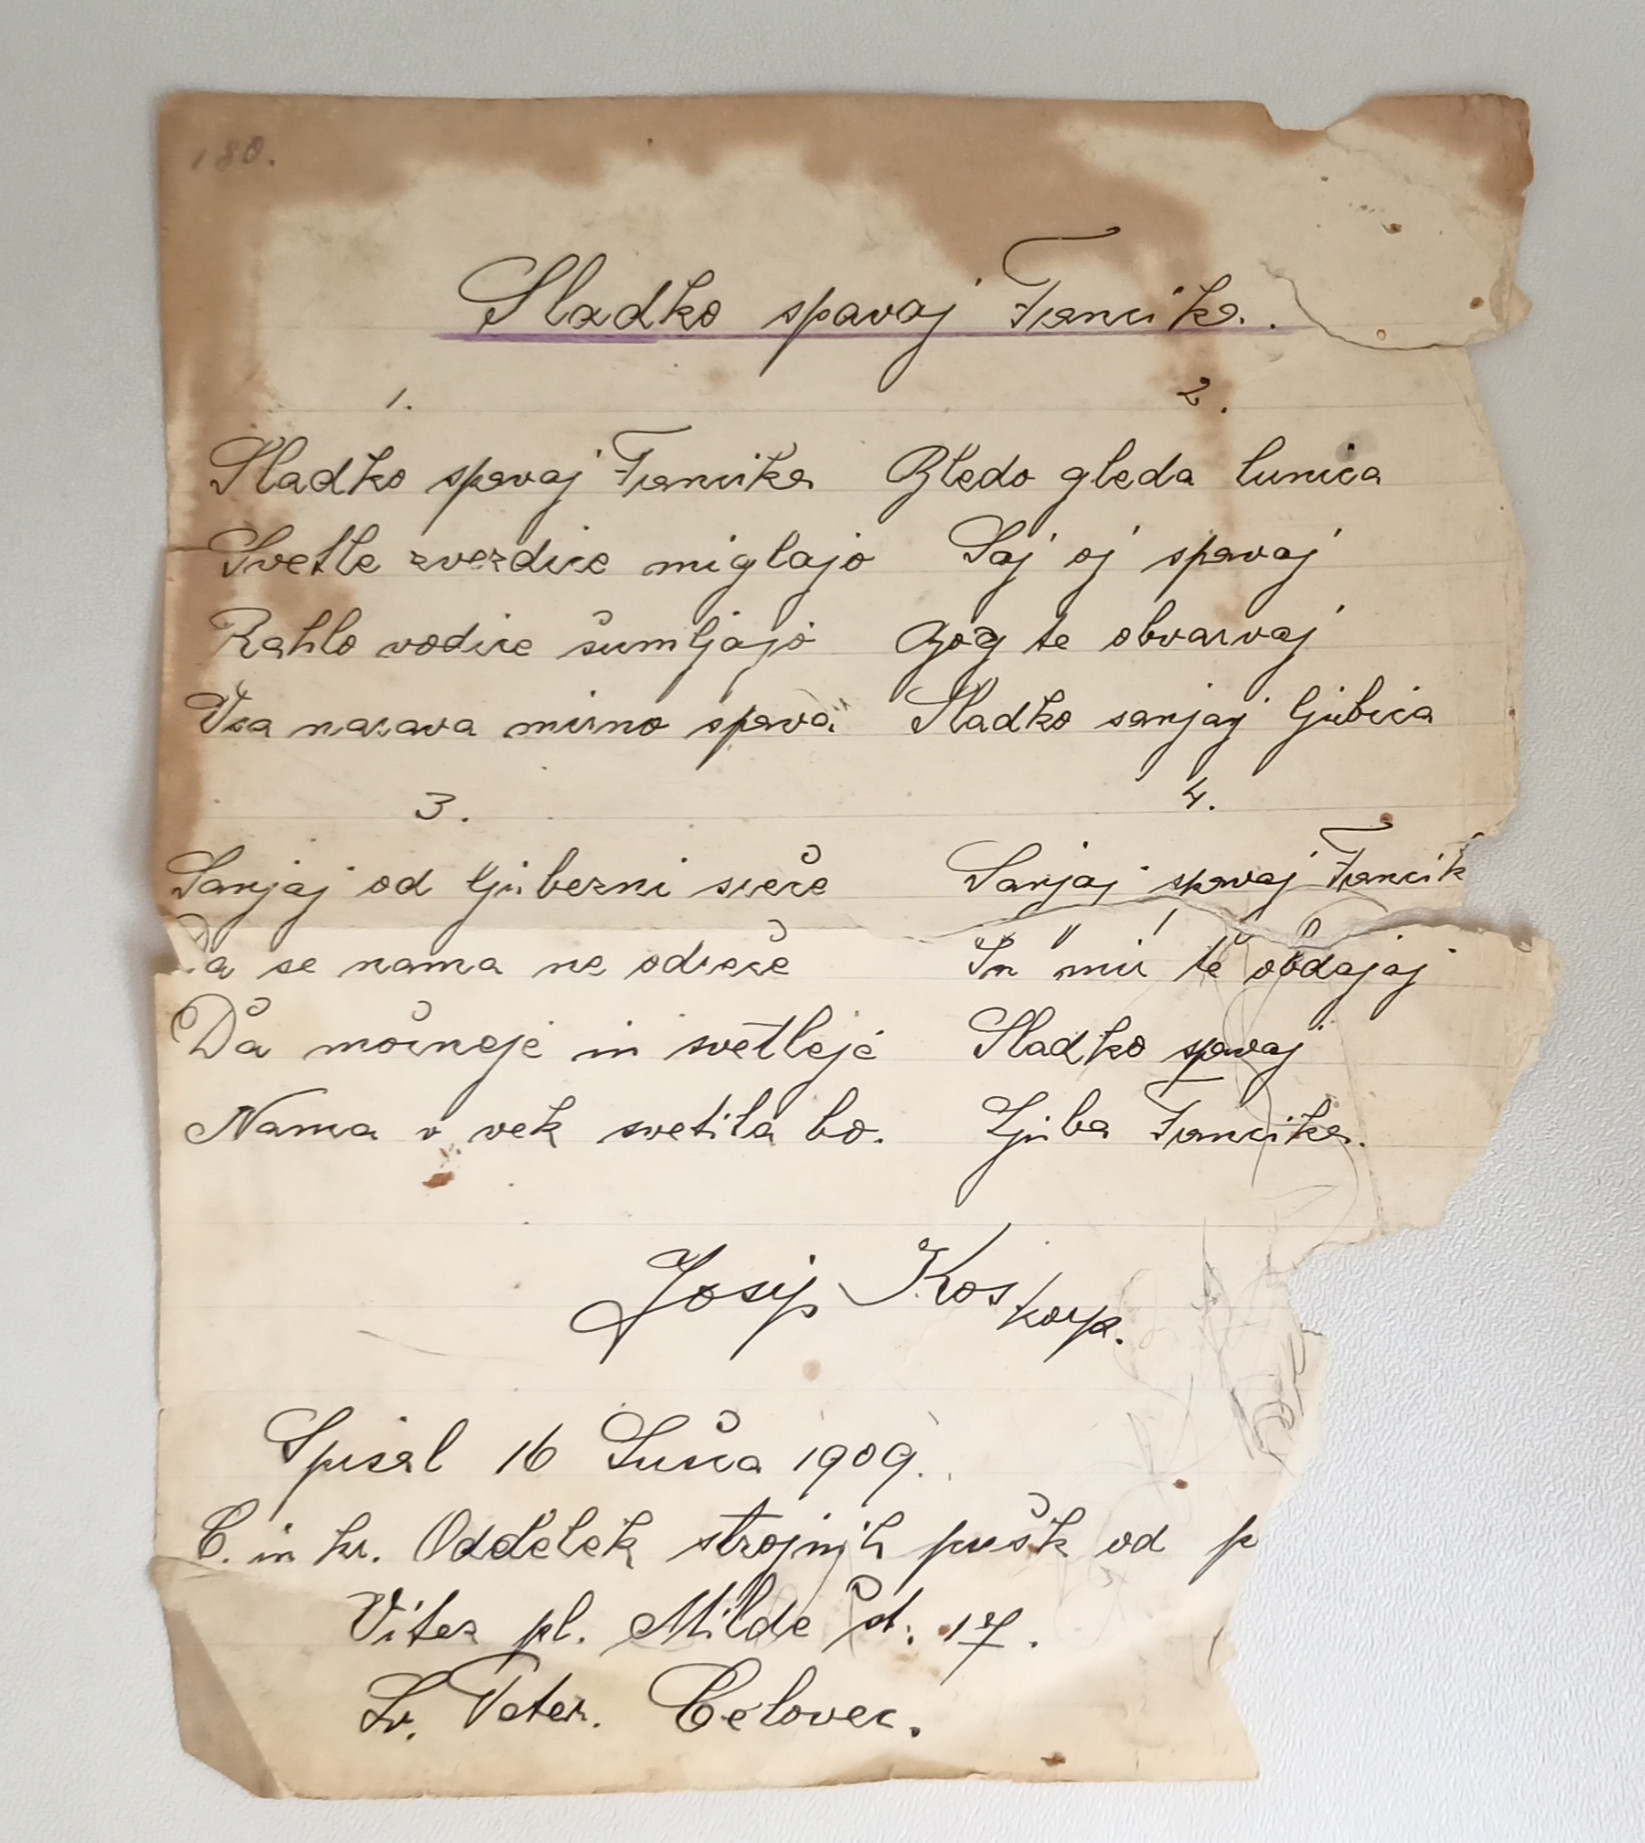 180.
Sladko spavaj Francika.
1.
Sladko spavaj Francika
Svetle zvezdice miglajo
Rahlo vodice šumljajo
Vsa narava mirno spava.
2.
Bledo gleda lunica
Saj oj spavaj
Bog te obvarvaj
Sladko sanjaj ljubica
3.
Sanjaj od ljubezni sreče
Da se nama ne odreče
Da močneje in svetleje
Nama v vek svetila bo.
4.
Sanjaj spavaj Francik
In mir te obdajaj
Sladko spavaj
Ljuba Francika.
Josip Kos korp.
Spisal 16 Sušca 1909.
C. in kr. Oddelek strojnih pušk od p
Vitez pl. Milde št. 17.
Sv. Peter. Celovec.